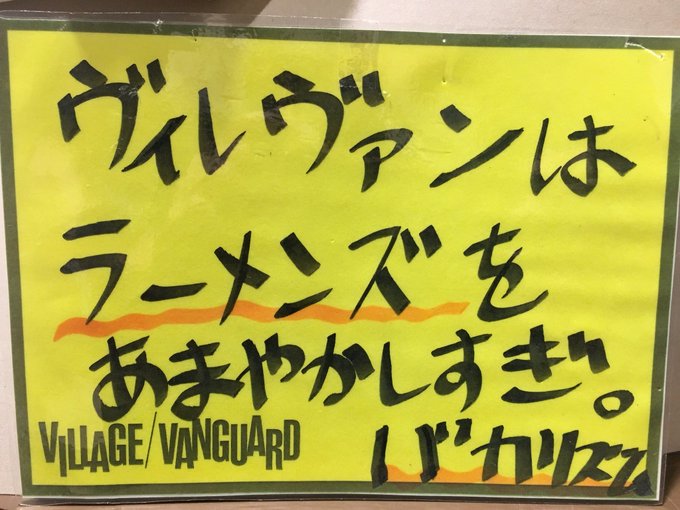 ヴィレヴァンは
ラーメンズを
あまやかしすぎ。
VILLAGE/VANGUARD
バカリズム